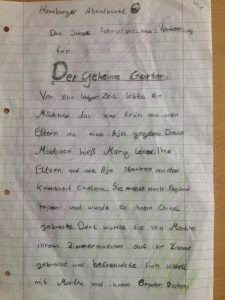 Hamburger Abendkunst
Das Junge Schauspielhaus: Vorbereitung
für:
Der geheime Garten
Vor sehr langer Zeit lebte ein
Mädchen das von früh an von
Eltern an eine Aja gegeben. Dieses
Mädchen hieß Mary Lenox. Ihre
Eltern und ihre Aja starben an der
Krankheit Cholera. Sie musste nach England
reisen und wurde zu ihrem Onkel
gebracht. Dort wurde sie von Martha
ihrem Zimmermädchen auf ihr Zimmer
gebracht und befreundete sich schnell
mit Martha und ihrem Bruder Dickon,